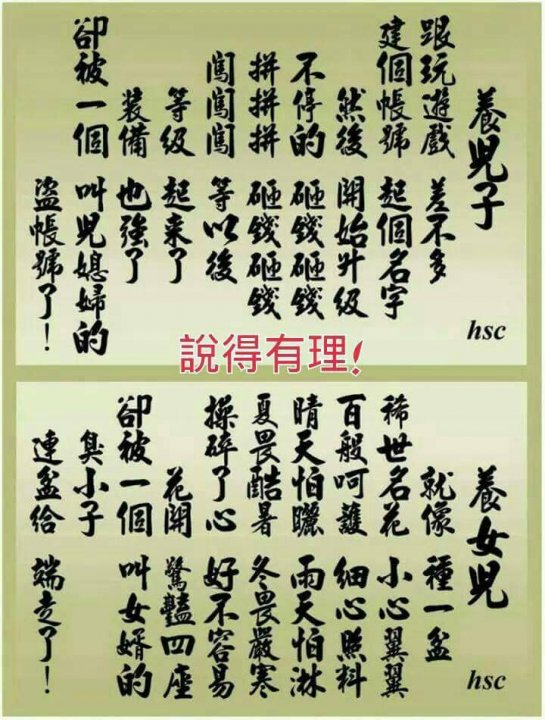 養兒子
跟玩遊戲 差不多
建個帳號 起個名字
然後 開始升級
不停的 砸錢砸錢
拼拼拼 砸錢砸錢
闖闖闖 等以後
等級 起來了
裝備 也強了
卻被一個 叫兒媳婦的
盜帳號了！
hsc
說得有理！
養女兒
就像 種一盆
稀世名花 小心翼翼
百般呵護 細心照料
晴天怕曬 雨天怕淋
夏畏酷暑 冬畏嚴寒
操碎了心 好不容易
花開 驚豔四座
卻被一個 叫女婿的
臭小子
連盆給 端走了！
hsc